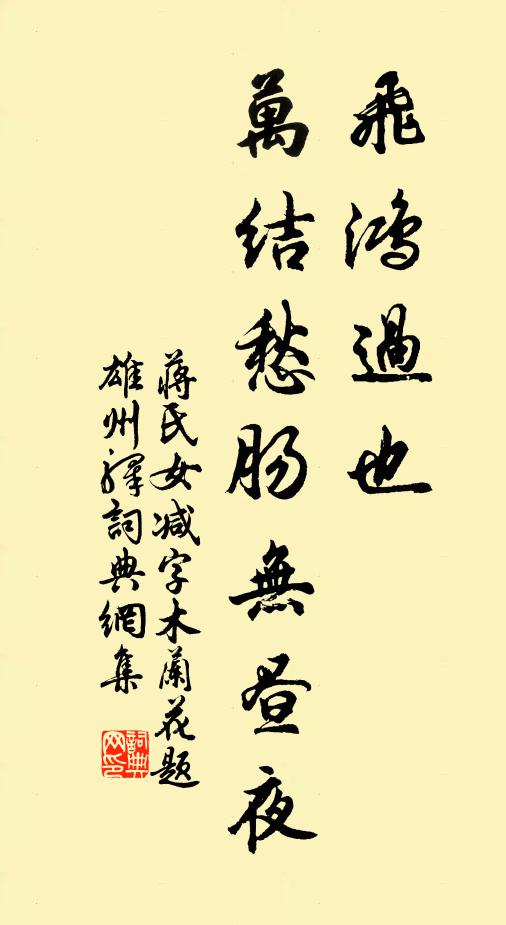 飛鴻過也
萬結愁腸無晝夜
蔣氏女减字木蘭花題
雄州驛詞典網集
詞典
网印